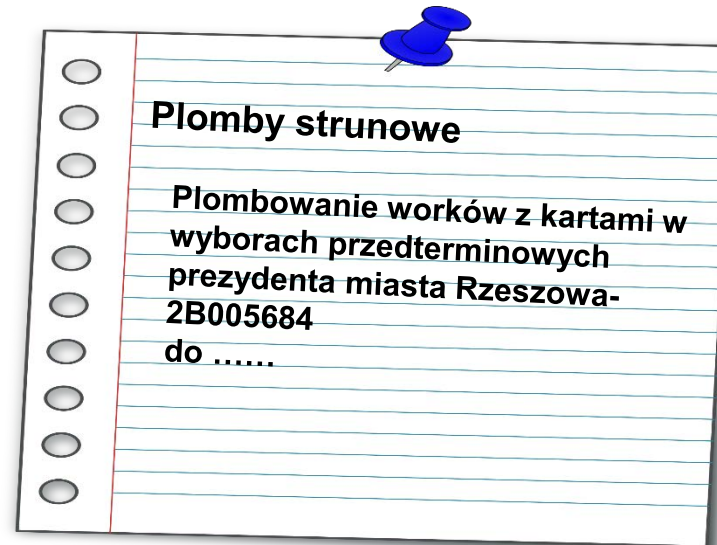 Plomby strunowe
Plombowanie worków z kartami w
wyborach przedterminowych
prezydenta miasta Rzeszowa-
2B005684
do ......